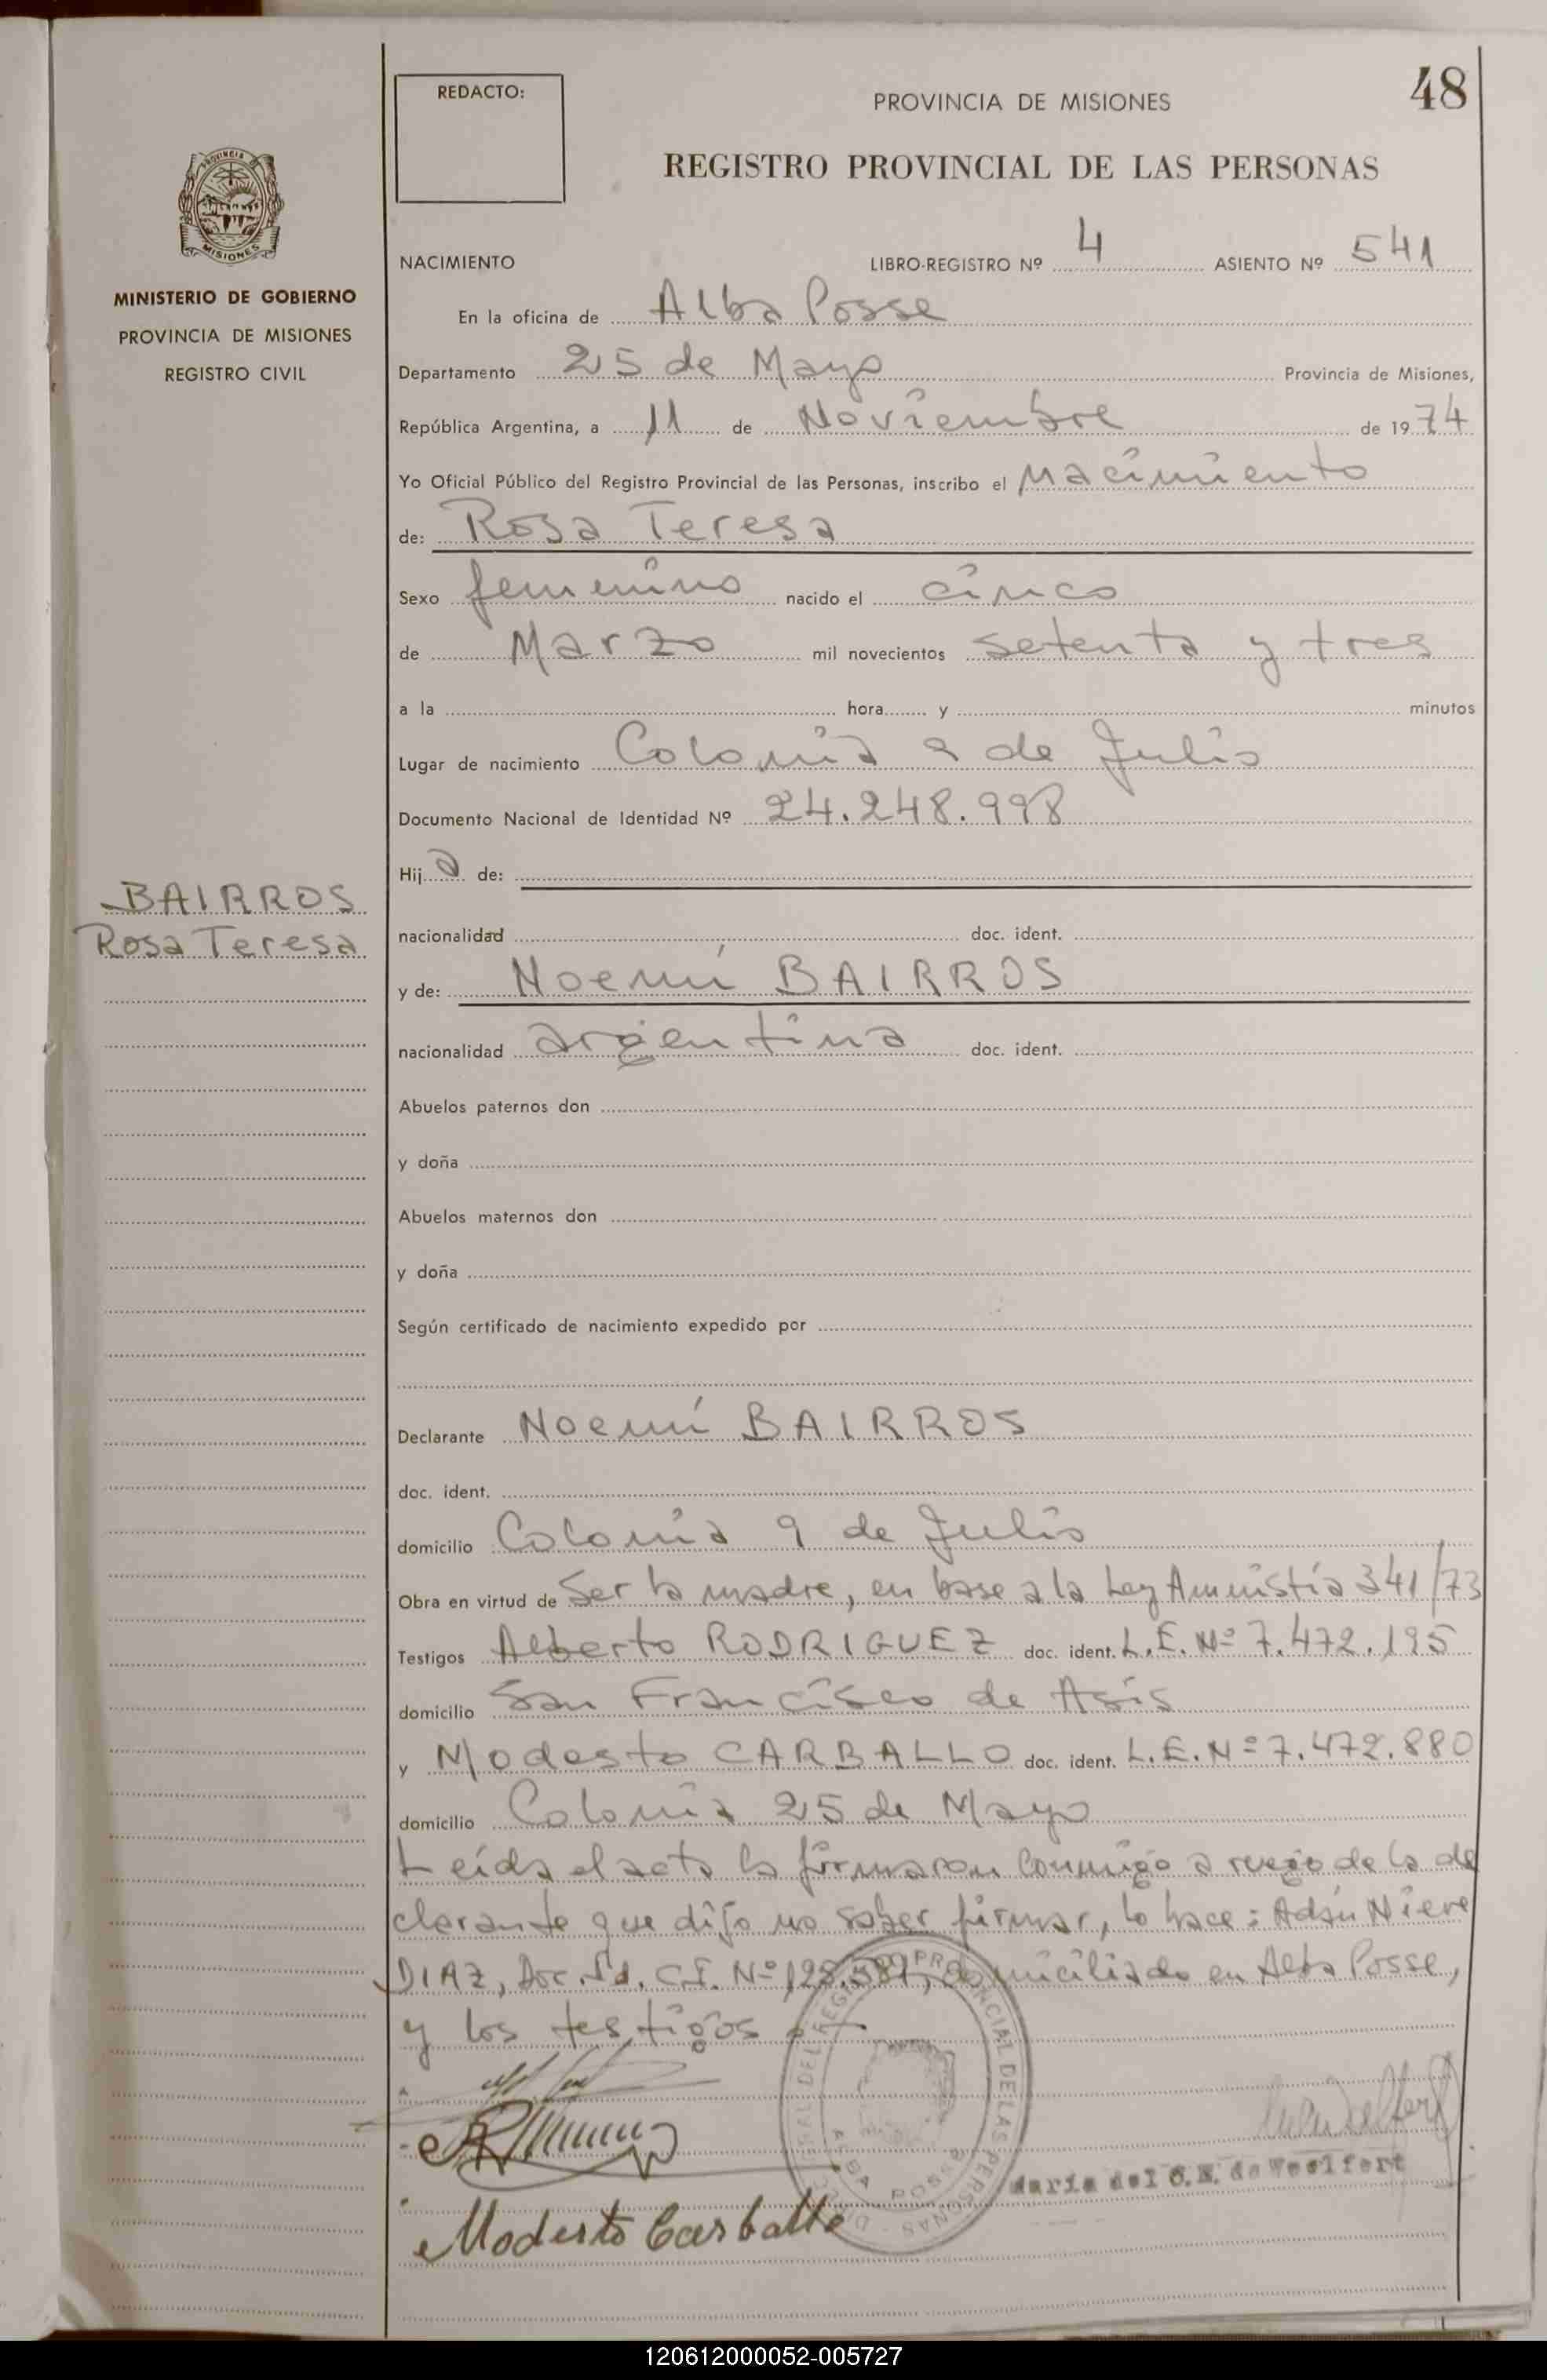 REDACTO:
PROVINCIA DE MISIONES
48
REGISTRO PROVINCIAL DE LAS PERSONAS
PROVINCIA DE
MISIONES
MINISTERIO DE GOBIERNO
PROVINCIA DE MISIONES
REGISTRO CIVIL
NACIMIENTO LIBRO-REGISTRO Nº 4 ASIENTO Nº 541
En la oficina de Alba Posse
Departamento 25 de Mayo Provincia de Misiones,
República Argentina, a 11 de Noviembre de 1974
Yo Oficial Público del Registro Provincial de las Personas, inscribo el nacimiento
de: Rosa Teresa
Sexo femenino nacido el cinco
de Marzo mil novecientos setenta y tres
a la hora y minutos
Lugar de nacimiento Colonia 9 de Julio
Documento Nacional de Identidad Nº 24.248.998
Hija de:
BAIRROS
Rosa Teresa
nacionalidad doc. ident.
y de: Noemí BAIRROS
nacionalidad argentina doc. ident.
Abuelos paternos don
y doña
Abuelos maternos don
y doña
Según certificado de nacimiento expedido por
Declarante Noemí BAIRROS
doc. ident.
domicilio Colonia 9 de Julio
Obra en virtud de Ser la madre, en base a la Ley Amnistía 341/73
Testigos Alberto RODRIGUEZ doc. ident. L.E. Nº 7.472.195
domicilio San Francisco de Asís
y Modesto CARBALLO doc. ident. L.E. Nº 7.472.880
domicilio Colonia 25 de Mayo
Leída el acta la firmaron conmigo a ruego de la de
clarante que dijo no saber firmar, lo hace: Adán Nieve
DIAZ, Doc. Id. C.I. Nº 128.581, domiciliado en Alba Posse,
y los testigos
REGISTRO PROVINCIAL DE LAS PERSONAS
ALBA POSSE
María del C. N. de Weelfert
Modesto Carballo
120612000052-005727